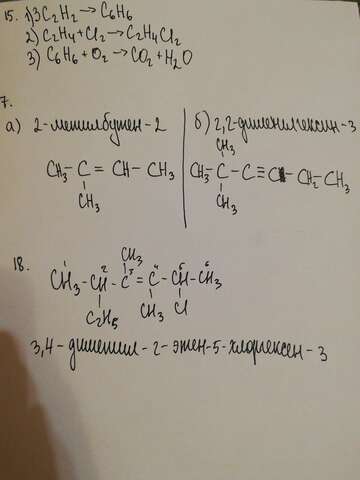 15. 1) 3C₂H₂ → C₆H₆
2) C₂H₄ + Cl₂ → C₂H₄Cl₂
3) C₆H₆ + O₂ → CO₂ + H₂O
7.
а) 2-метилбутен-2
CH₃ - C = CH - CH₃
CH₃
б) 2,2-диметилгексин-3
CH₃
CH₃ - C - C ≡ C - CH₂ - CH₃
CH₃
18.
CH₃
1 2 3 4 5 6
CH₃ - CH - C = C - CH - CH₃
C₂H₅ CH₃ Cl
3,4-диметил-2-этен-5-хлоргексен-3